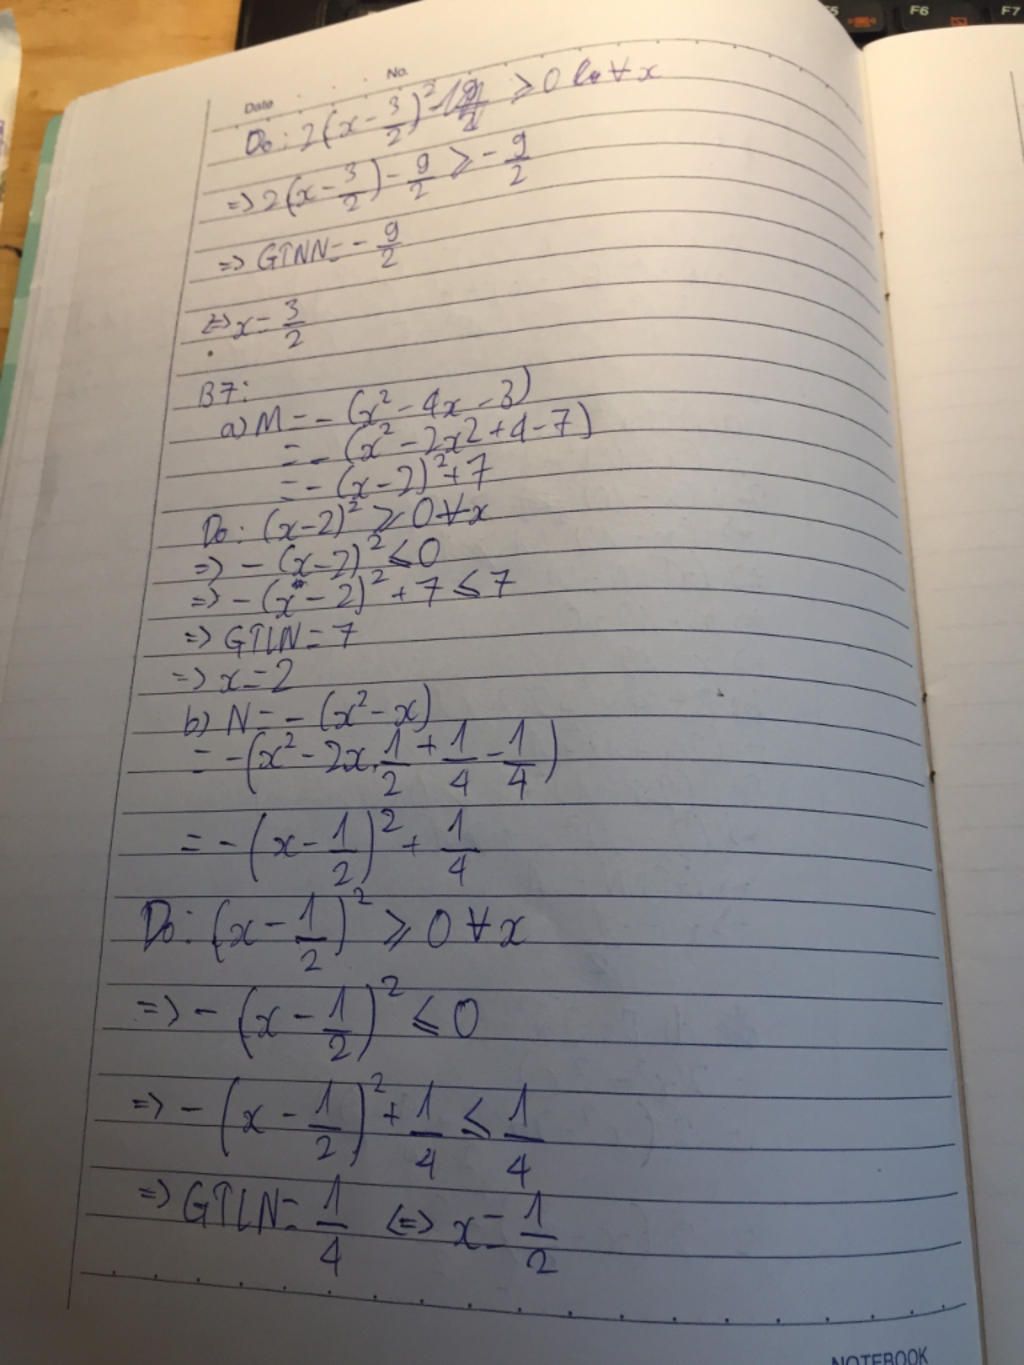 F5 F6 F7
Date No.
Do: 2(x - 3/2)² ≥ 0 ∀x
=> 2(x - 3/2) - 9/2 ≥ - 9/2
=> GTNN = - 9/2
<=> x = 3/2
B7:
a) M = - (x² - 4x - 3)
= - (x² - 2x2 + 4 - 7)
= - (x - 2)² + 7
Do: (x - 2)² ≥ 0 ∀x
=> - (x - 2)² ≤ 0
=> - (x - 2)² + 7 ≤ 7
=> GTLN = 7
=> x = 2
b) N = - (x² - x)
= - (x² - 2x.1/2 + 1/4 - 1/4)
= - (x - 1/2)² + 1/4
Do: (x - 1/2)² ≥ 0 ∀x
=> - (x - 1/2)² ≤ 0
=> - (x - 1/2)² + 1/4 ≤ 1/4
=> GTLN = 1/4 <=> x = 1/2
NOTEBOOK